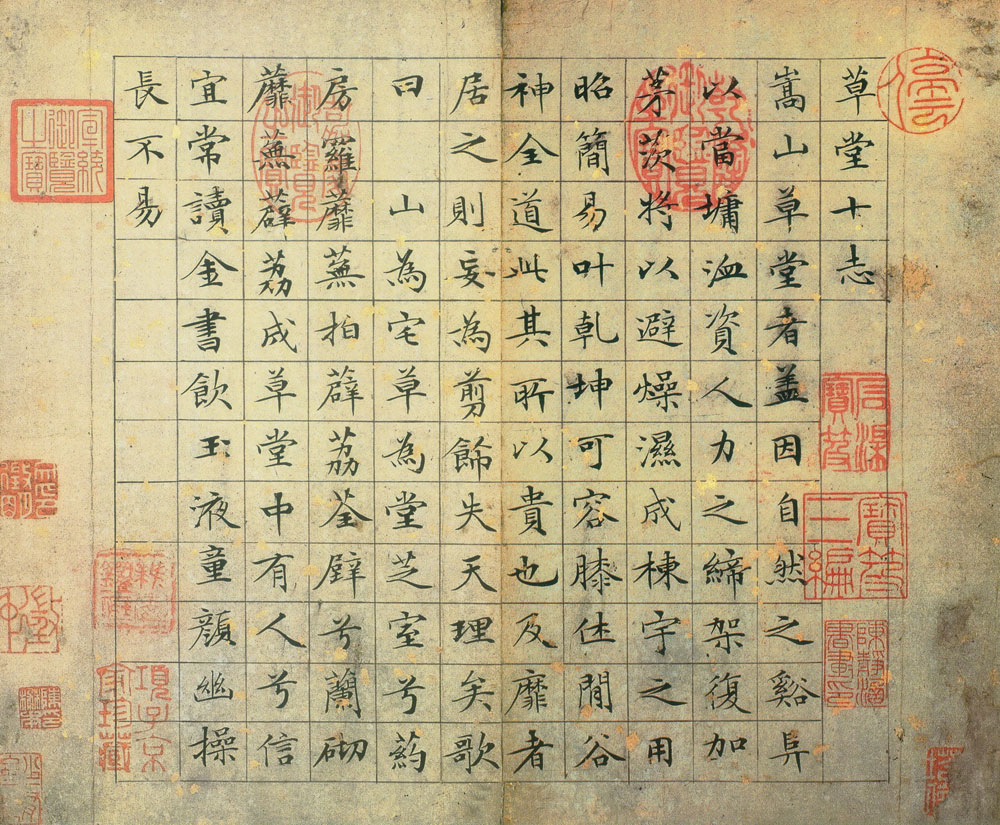 草堂十志
嵩山草堂者盖因自然之谿阜
以當墉洫資人力之締架復加
茅茨将以避燥濕成棟宇之用
昭簡易叶乾坤可容膝休閒谷
神全道此其所以貴也及靡者
居之則妄為剪餙失天理矣歌
曰 山為宅草為堂芝室兮葯
房羅蘼蕪拍薜荔荃壁兮蘭砌
蘼蕪薜荔成草堂中有人兮信
宜常讀金書飲玉液童顔幽操
長不易
石渠寶笈
寶笈三編
宣統御覽之寶
項子京家珍藏